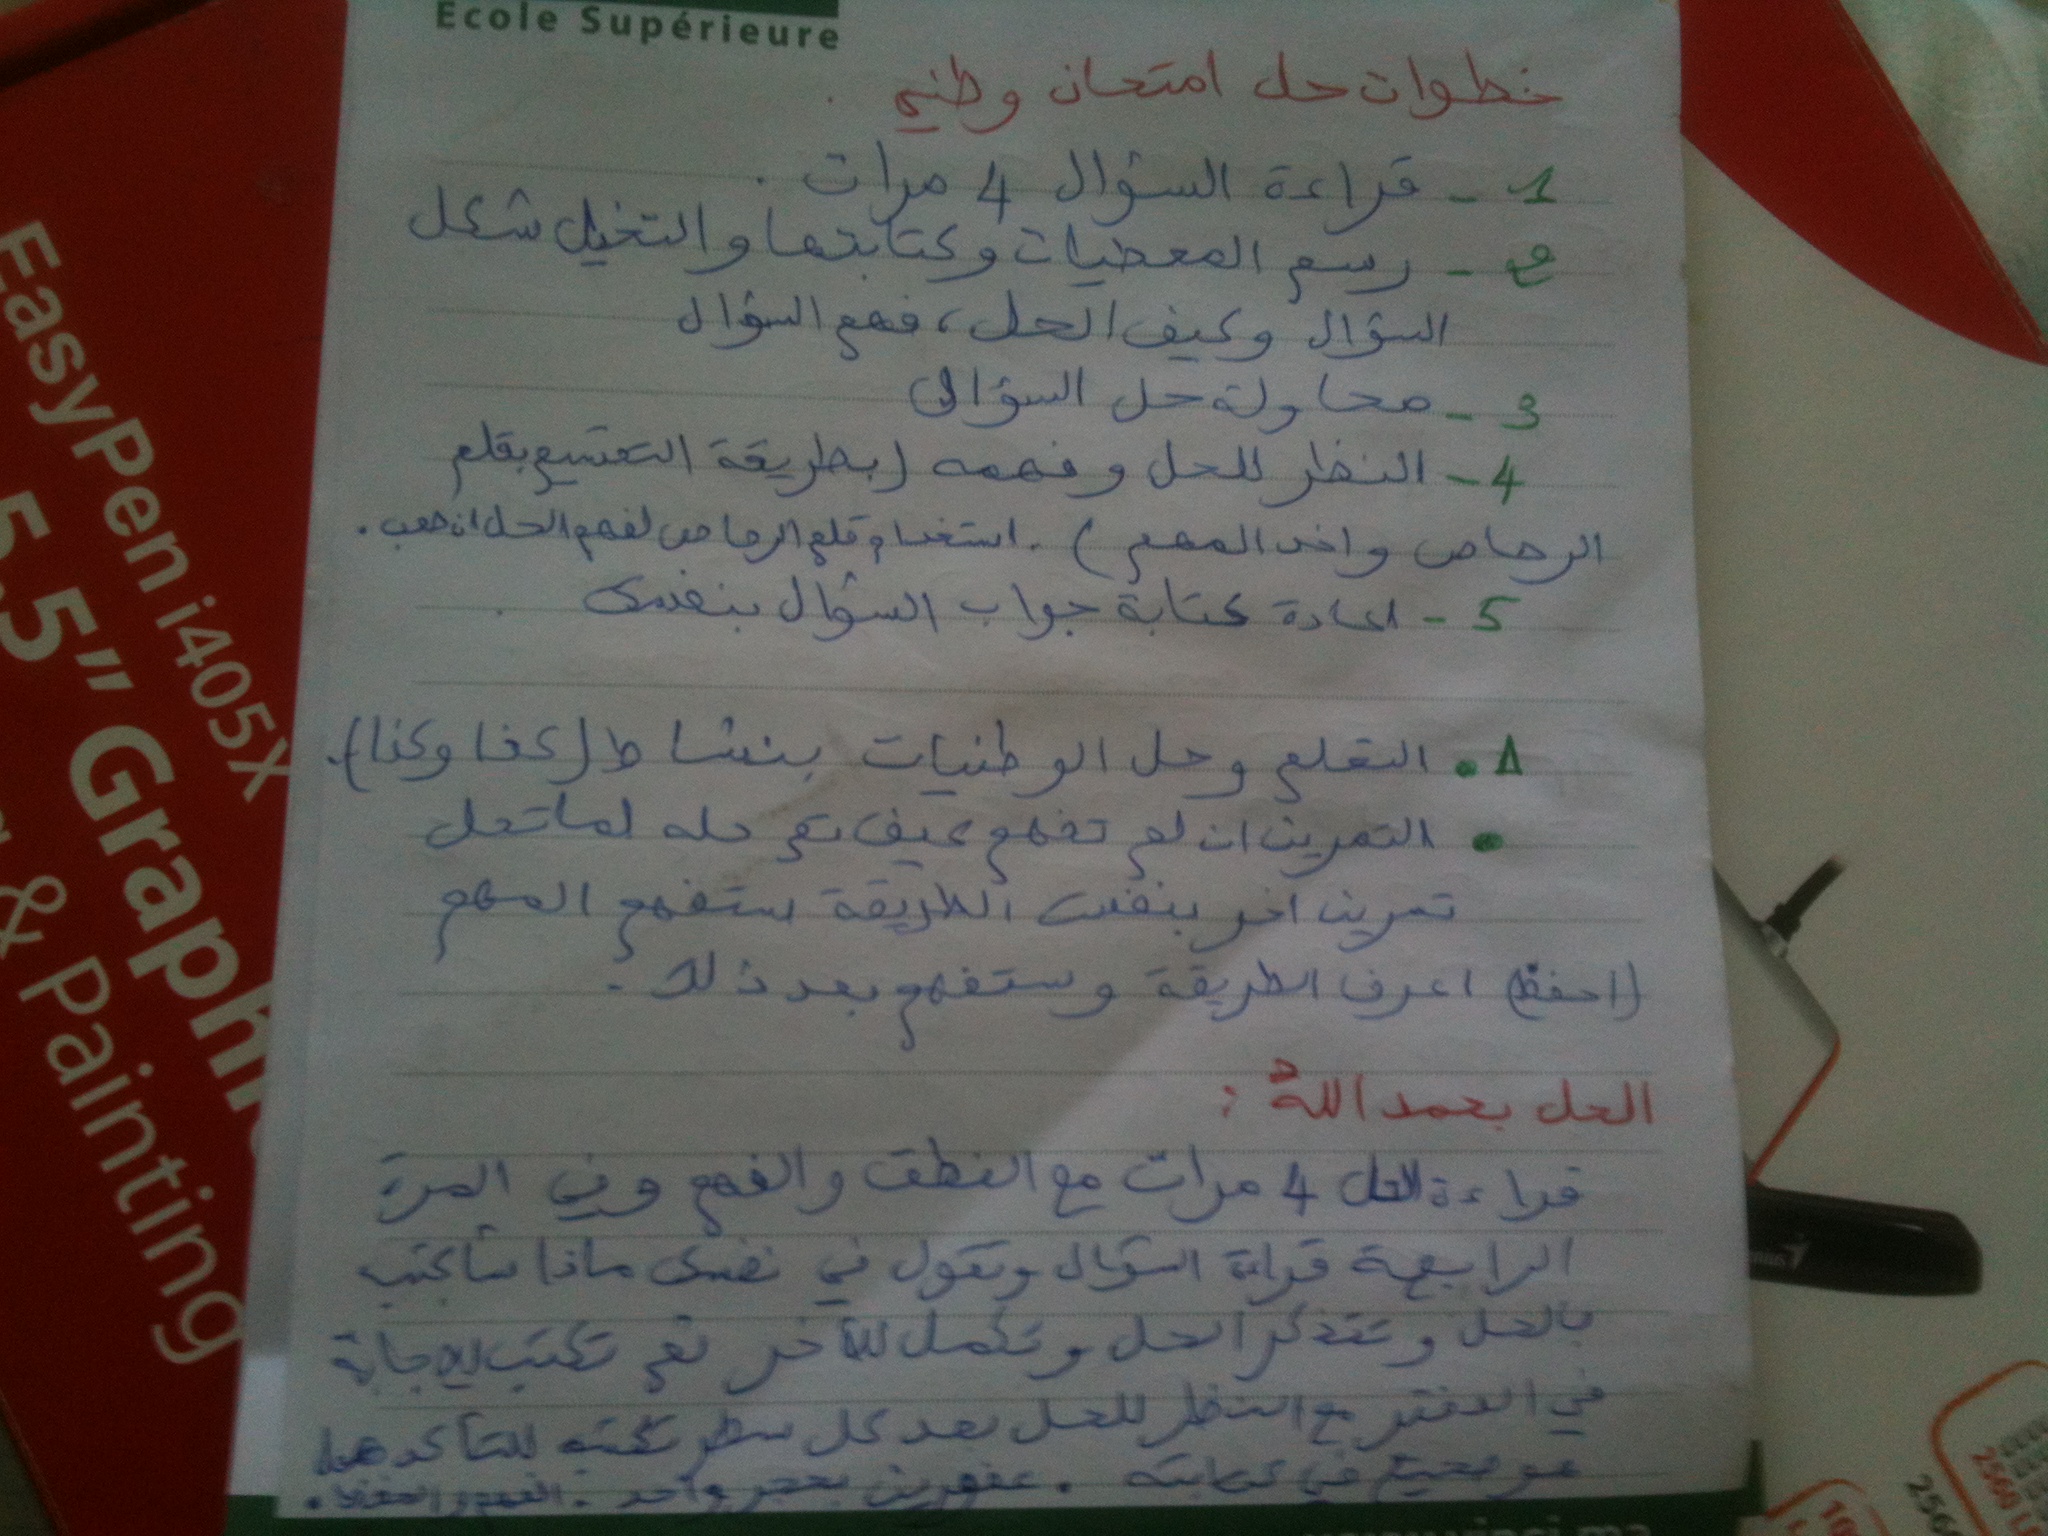 Ecole Supérieure
خطوات حل امتحان وطني .
1 - قراءة السؤال 4 مرات .
2 - رسم المعطيات وكتابتها والتخيل شكل
السؤال وكيف الحل، فهم السؤال
3 - محاولة حل السؤال
4 - النظر للحل وفهمه (بطريقة التعشيع بقلم
الرصاص واخد المهم) . استخدام قلم الرصاص لفهم الحل ان صعب .
5 - اعادة كتابة جواب السؤال بنفسك
• التعلم وحل الوطنيات بنشاط (كذا وكذا).
• التمرين ان لم تفهم كيف تم حله لما تحل
تمرين اخر بنفس الطريقة ستفهم المهم
(احفظ) اعرف الطريقة وستفهم بعد ذلك .
الحل بحمد الله :
قراءة الحل 4 مرات مع النطق والفهم وفي المرة
الرابعة قراءة السؤال وتقول في نفسك ماذا سأكتب
بالحل وتتذكر الحل وتكمل للآخر ثم تكتب الإجابة
في الدفتر مع النظر للحل بعد كل سطر تكتبه للتأكد هل
هو صحيح في كتابته . عصفورين بحجر واحد : الفهم والحفظ .
EasyPen i405X
5.5" Graphic
& Painting
Genius
2560
256
10